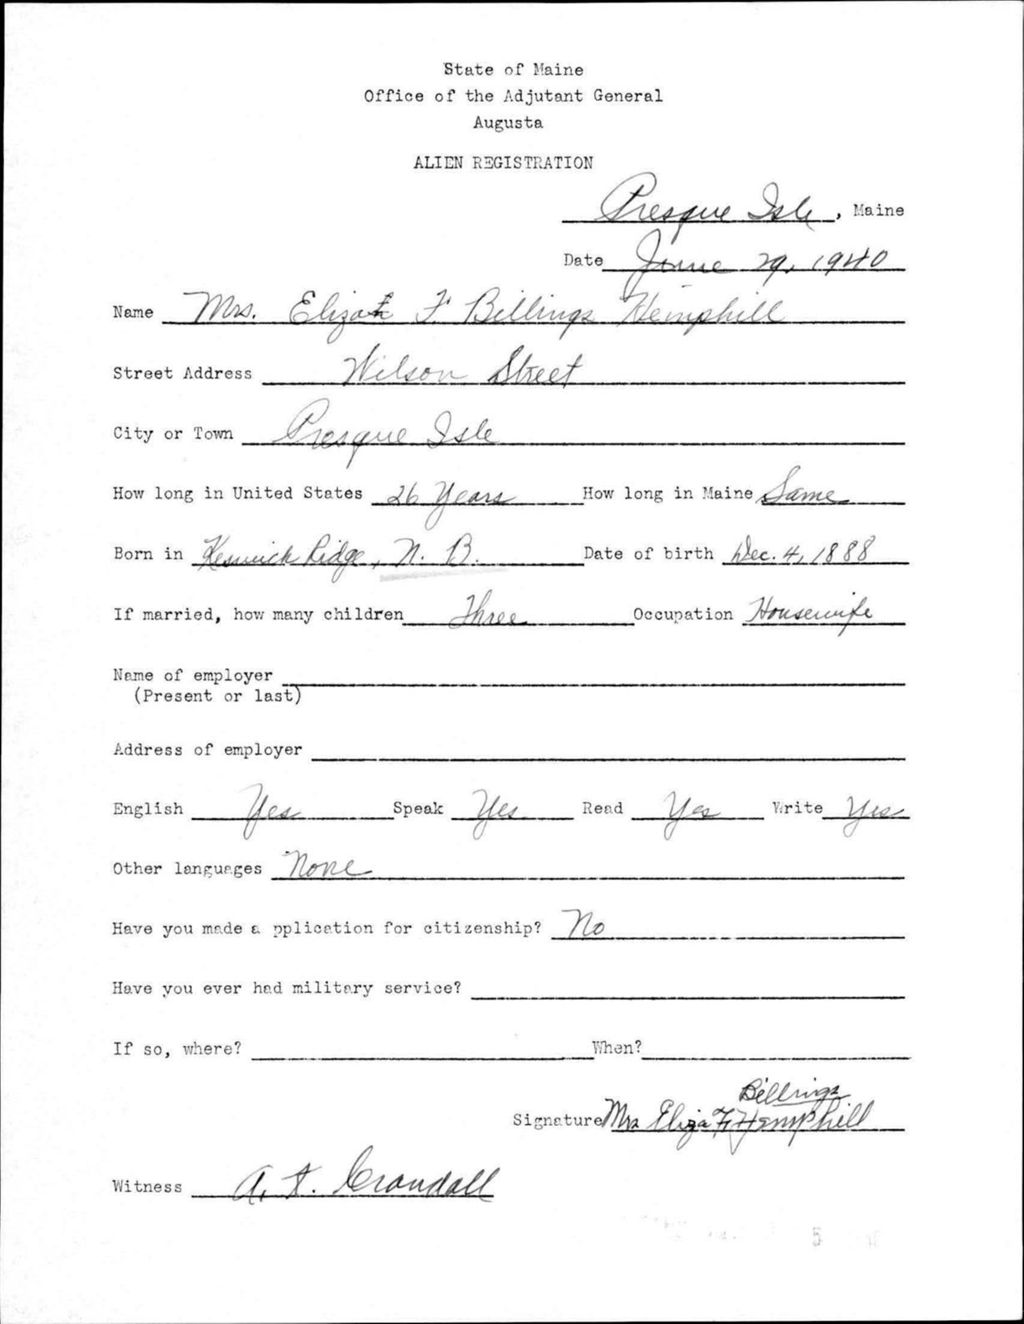 State of Maine
Office of the Adjutant General
Augusta
ALIEN REGISTRATION
Presque Isle, Maine
Date June 29, 1940
Name Mrs. Eliza F. Billings Hemphill
Street Address Wilson Street
City or Town Presque Isle
How long in United States 26 Years How long in Maine Same
Born in Keswick Ridge, N. B. Date of birth Dec. 4, 1888
If married, how many children Three Occupation Housewife
Name of employer
(Present or last)
Address of employer
English Yes Speak Yes Read Yes Write Yes
Other languages None
Have you made a pplication for citizenship? No
Have you ever had military service?
If so, where? When?
Billings
Signature Mrs Eliza F. Hemphill
Witness A. Crandall